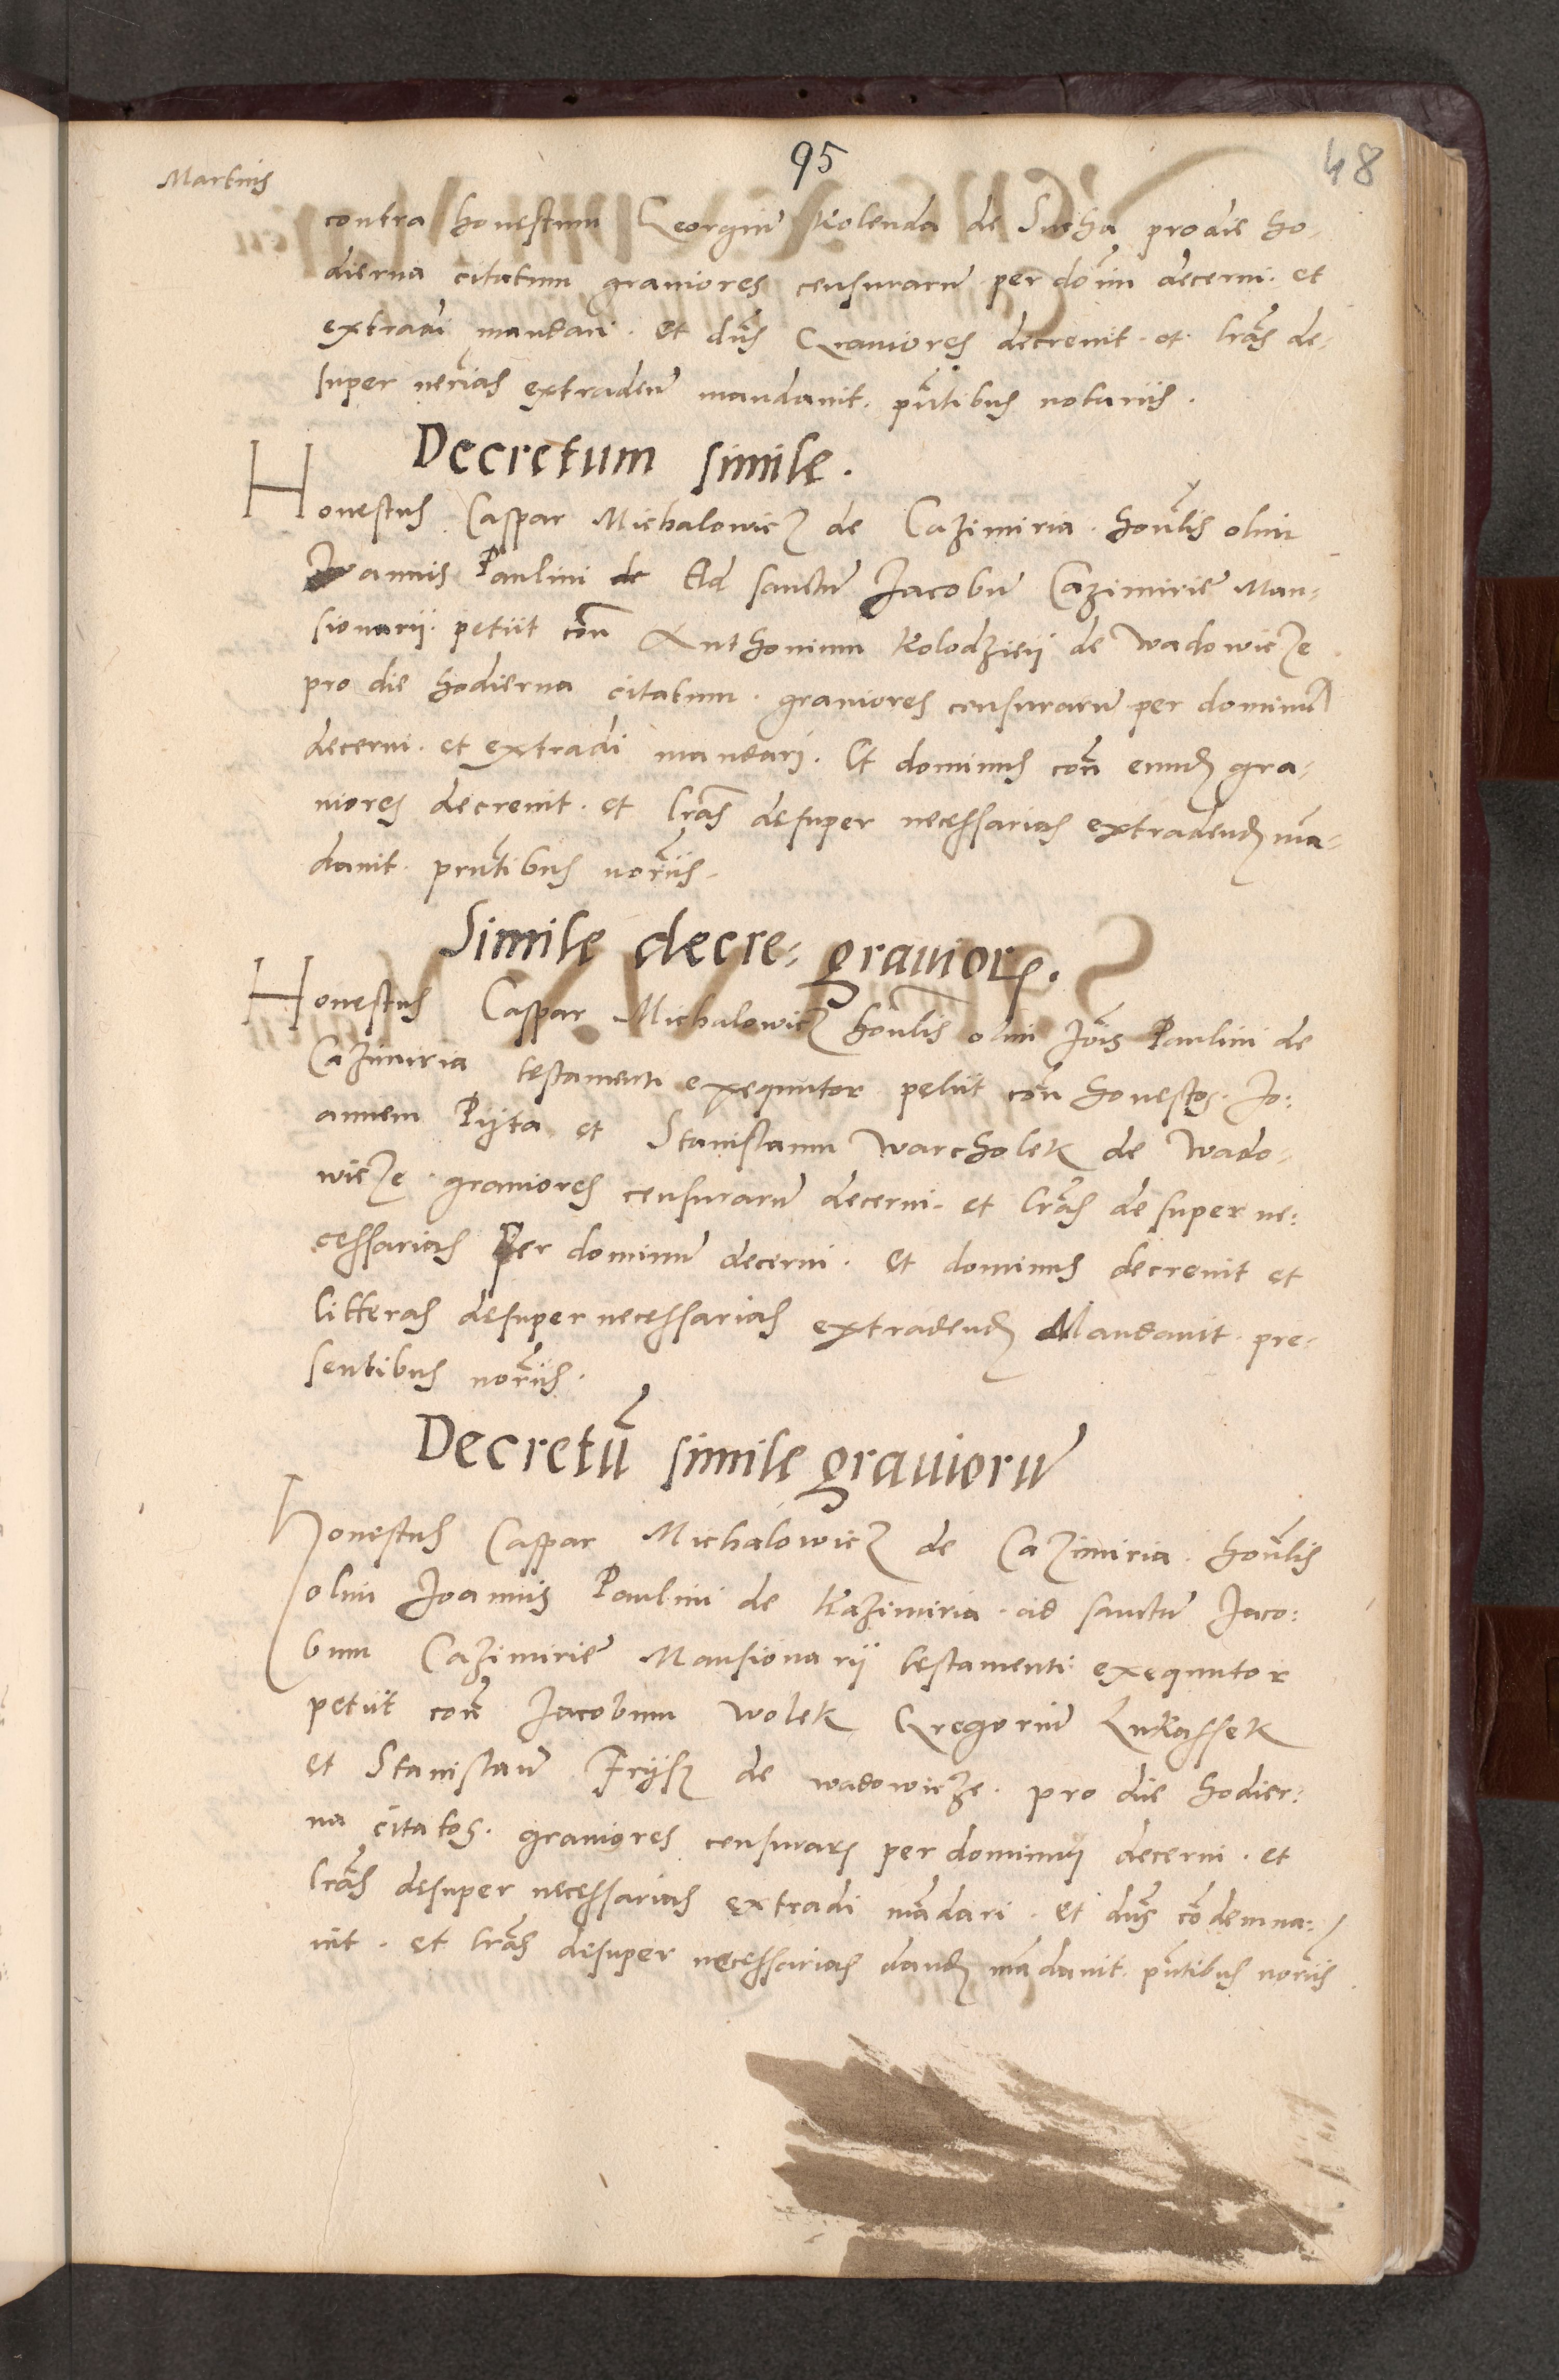 95
48
Martius
contra honestum Georgiu Kolenda de Sucha pro die ho-
dierna citatum graviores censuraru per domin decerni. et
extradi mandari. Et dns Graviores decrevit. et lras de-
super necrias extradeñ mandavit. pntibus notariis.
Decretum simile.
Honestus Caspar Michalowicz de Cazimiria. honlis olim
Joannis Paulini de Ad sanctu Jacobu Cazimirie Man-
sionarii. petiit con Anthonium Kolodzieij de Wadowicze
pro die hodierna citatum. graviores censuraru per dominu
decerni. et extradi mandari. Et dominus con eund gra-
viores decrevit. et lras desuper necessarias extradend ma-
davit. prntibus noriis.
Simile decre: gravior.
Honestus Caspar Michalowicz honlis olim Jois Paulini de
Cazimiria testamenti exequutor petiit con honestos. Jo:
annem Pijta et Stanislaum Warcholek de Wado-
wicze. graviores censuraru decerni. et lras de super ne:
cessarias Per dominu decerni. Et dominus decrevit et
litteras desuper necessarias extradend Mandavit. pre-
sentibus noriis.
Decretu simile gravioru
Honestus Caspar Michalowicz de Cazimiria. honlis
olim Joannis Paulini de Kazimiria. ad sanctu Jaco:
bum Cazimirie Mansionarii testamenti exequutor
petiit con Jacobum Wolek Gregoriu Lukassek
et Stanislau Frijsz de wadowicze. pro die hodier:
na citatos. graviores censurar per dominu decerni. et
lras desuper necessarias extradi madari. Et dns codemna:
vit. et lras desuper necessarias dand madavit. pntibus noriis